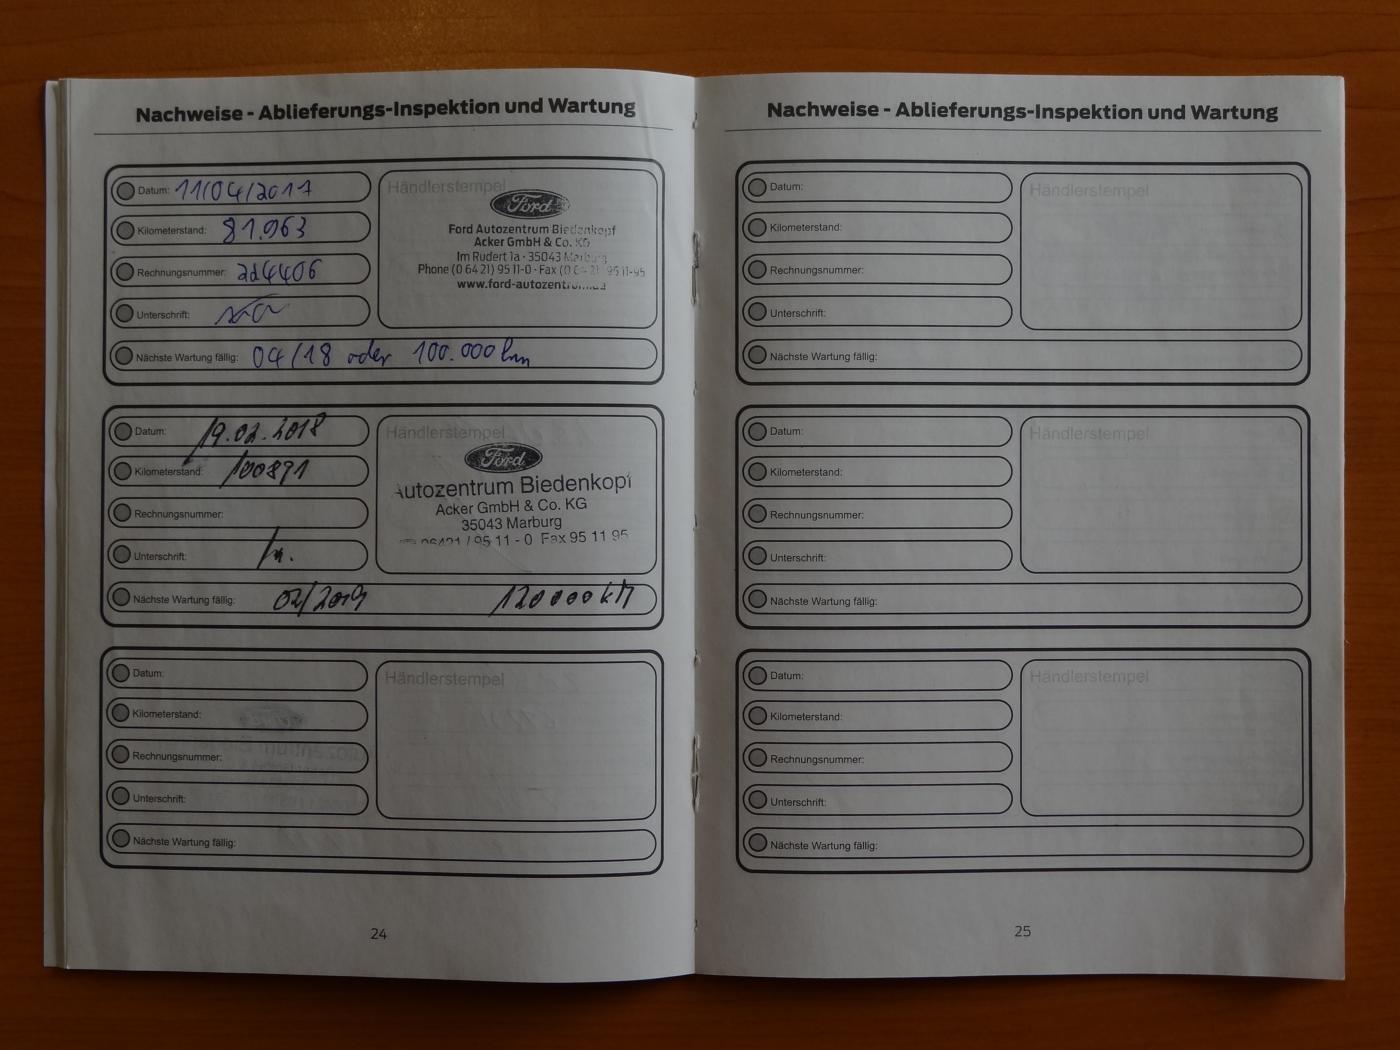 Nachweise - Ablieferungs-Inspektion und Wartung
Datum: 11/04/2017
Kilometerstand: 81.963
Rechnungsnummer:
Unterschrift:
Nächste Wartung fällig: 04/18 oder 100.000 km
Händlerstempel
Ford
Ford Autozentrum Biedenkopf
Acker GmbH & Co. KG
Im Rudert 1a - 35043 Marburg
Phone (0 64 21) 95 11-0 - Fax (0 64 21) 95 11-95
www.ford-autozent
Datum: 19.02.2018
Kilometerstand: 100891
Rechnungsnummer:
Unterschrift:
Nächste Wartung fällig: 02/2019 120000 KM
Händlerstempel
Ford
Autozentrum Biedenkopf
Acker GmbH & Co. KG
35043 Marburg
06421 / 95 11 - 0 Fax 95 11 95
Datum:
Kilometerstand:
Rechnungsnummer:
Unterschrift:
Nächste Wartung fällig:
Händlerstempel
24
Nachweise - Ablieferungs-Inspektion und Wartung
Datum:
Kilometerstand:
Rechnungsnummer:
Unterschrift:
Nächste Wartung fällig:
Händlerstempel
Datum:
Kilometerstand:
Rechnungsnummer:
Unterschrift:
Nächste Wartung fällig:
Händlerstempel
Datum:
Kilometerstand:
Rechnungsnummer:
Unterschrift:
Nächste Wartung fällig:
Händlerstempel
25